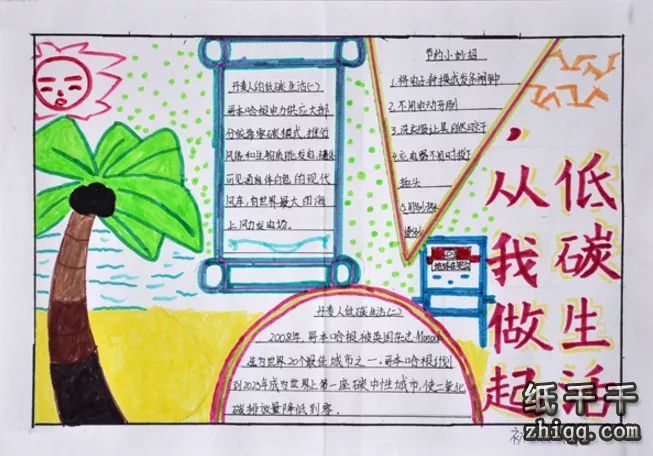 丹麦人的低碳生活(一)
哥本哈根电力供应大部
分依靠零碳模式,推行
风能和生物质能发电,随处
可见通身体白色的现代
风车,有世界最大的海
上风力发电场。
节约小妙招
1.将电子钟换成发条闹钟
2.不用电动牙刷
3.洗衣服让其自然晾干
4.充电器不用时拔下
插头
低碳生活
,从我做起
丹麦人低碳生活(二)
2008年,哥本哈根被英国杂志Monocle
选为世界20个最佳城市之一。哥本哈根计划
到2025年成为世界上第一座碳中性城市,使二氧化
碳排放量降低到零。
纸千千
zhiqq.com